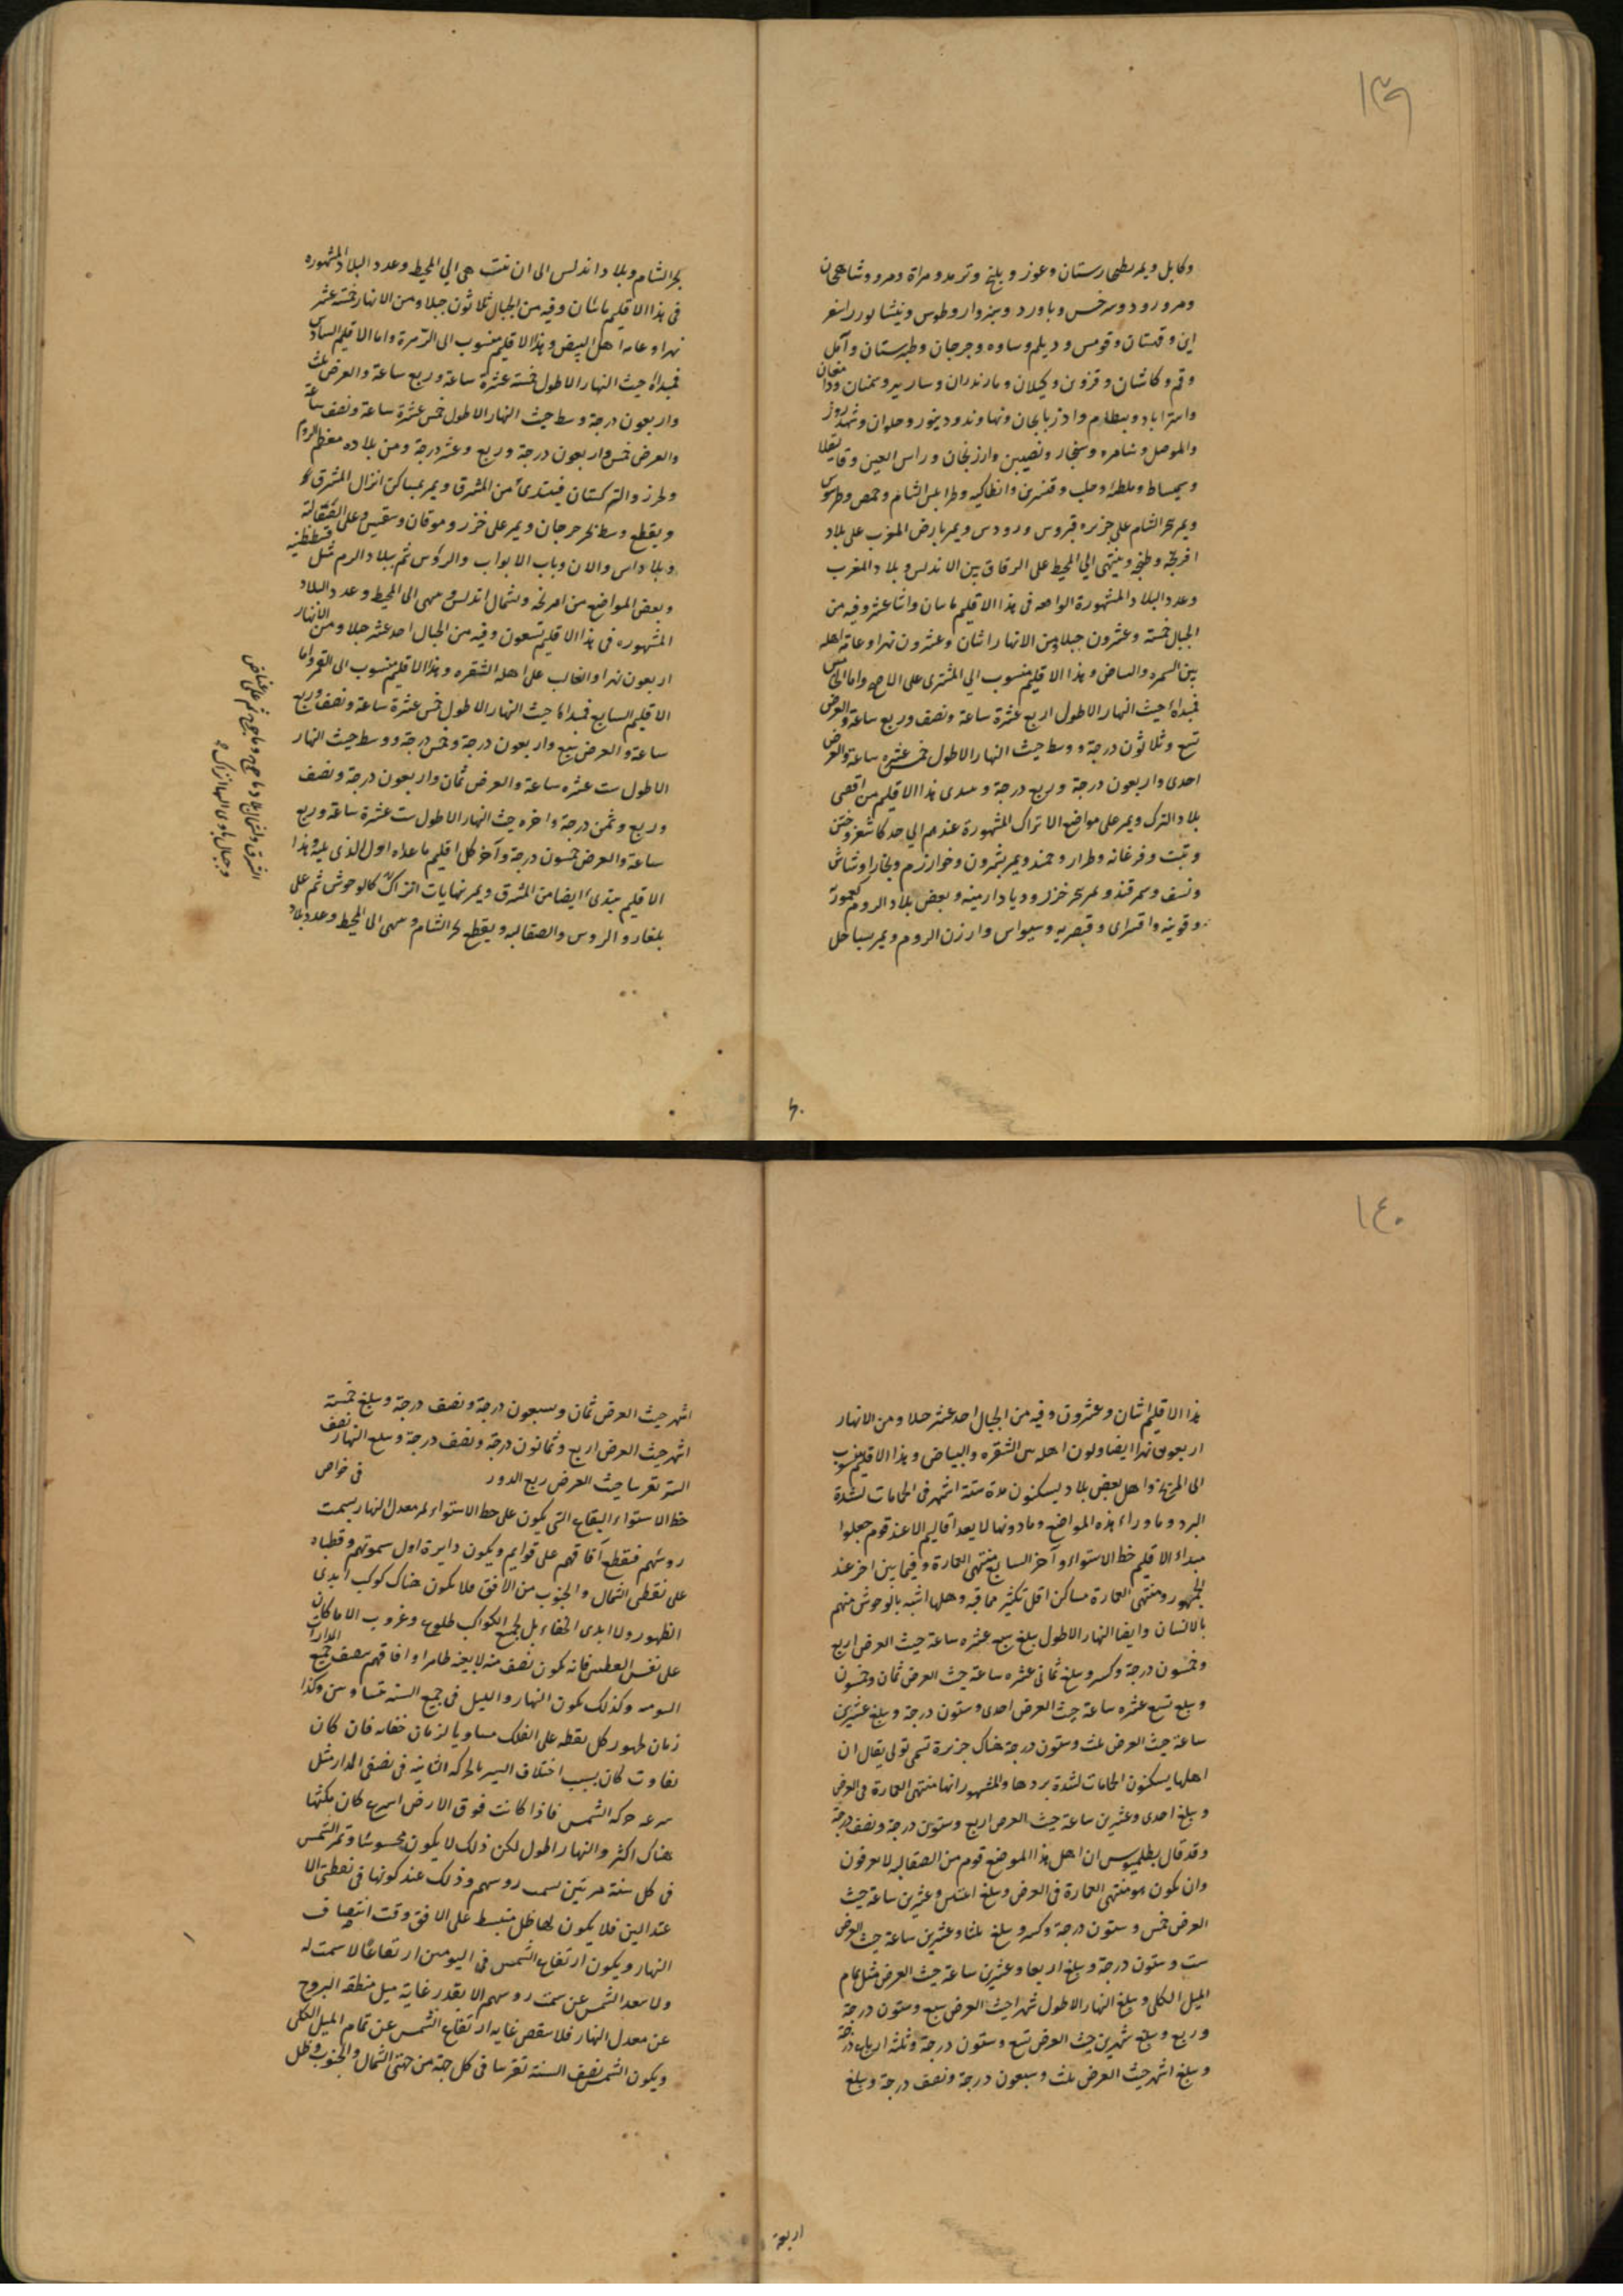 ١٣٩
وكابل ويمر بطخارستان وغور وبلخ وترمد وهراة ومرو وشاهجان
ومرورود وسرخس وباورد وسبزوار وطوس ونيشابور واسفر
اين وقهستان وقومس وديلم وساوه وجرجان وطبرستان وآمل
وقم وكاشان وقزوين وكيلان ومازندران وساريه وسمنان ودامغان
واستراباد وبسطام واذربايجان ونهاوند ودينور وحلوان وشهرزور
والموصل وسامره وسنجار ونصيبين وارزنجان وراس العين وقاليقلا
وسميساط وملطيه وحلب وقنسرين وانطاكيه وطرابلس الشام وحمص وطرسوس
ويمر ببحر الشام على جزيره قبروس ورودس ويمر بارض المغرب على بلاد
افرنجه وطنجه وينتهى الي المحيط على الزقاق بين الاندلس وبلاد المغرب
وعدد البلاد المشهورة الواقعه فى هذا الاقليم ماتان واثناعشر وفيه من
الجبال خمسة وعشرون جبلا ومن الانهار اثنان وعشرون نهرا وعامة اهله
بين السمره والبياض وهذا الاقليم منسوب الي المشترى على الاصح واما الخامس
فمبداه حيث النهار الاطول اربع عشرة ساعة ونصف وربع ساعة والعرض
تسع وثلاثون درجة ووسط حيث النهار الاطول خمس عشرة ساعة والعرض
احدى واربعون درجة وربع درجة ويبتدى هذا الاقليم من اقصى
بلاد الترك ويمر على مواضع الاتراك المشهورة عندهم الي حد كاشغر وختن
وتبت وفرغانه وطراز وخجند ويمر بشروان وخوارزم وبخارا وشاش
ونسف وسمرقند وبحر خزر وديار ارمينه وبعض بلاد الروم كعمورية
وقونيه واقسراى وقيصريه وسيواس وارزن الروم ويمر بسباحل
بحر الشام وبلاد اندلس الى ان ينتهى الي المحيط وعدد البلاد المشهوره
فى هذا الاقليم ماتان وفيه من الجبال ثلاثون جبلا ومن الانهار خمسة عشر
نهرا وعامه اهل البيض وهذا الاقليم منسوب الى الزهرة واما الاقليم السادس
فمبداه حيث النهار الاطول خمسة عشرة ساعة وربع ساعة والعرض ثلث
واربعون درجة وسط حيث النهار الاطول خمس عشرة ساعة ونصف ساعة
والعرض خمس واربعون درجة وربع وعشر درجة ومن بلاده معظم الروم
وخزر والتركستان فيبتدئ من المشرق ويمر بمساكن اتراك المشرق
ويقطع وسط بحر جرجان ويمر على خزر وموقان وسقسين وعلى الصقالبة
وبلاد اس والان وباب الابواب والروس ثم ببلاد الروم مثل قسطنطنيه
وبعض المواضع من افرنجه وبشمال اندلس وينتهى الى المحيط وعدد البلاد
المشهوره فى هذا الاقليم تسعون وفيه من الجبال احد عشر جبلا ومن الانهار
اربعون نهرا والغالب على اهله الشقره وهذا الاقليم منسوب الى القمر واما
الاقليم السابع فمبداه حيث النهار الاطول خمس عشرة ساعة ونصف وربع
ساعة والعرض سبع واربعون درجة وخمس درجة ووسط حيث النهار
الاطول ست عشره ساعة والعرض ثمان واربعون درجة ونصف
وربع وثمن درجة واخره حيث النهار الاطول ست عشرة ساعة وربع
ساعة والعرض خمسون درجة وآخر كل اقليم ما عداه اول الذى يليه وهذا
الاقليم يبتدى ايضا من المشرق ويمر بنهايات اتراك كالوحوش ثم على
بلغار والروس والصقالبه ويقطع بحر الشام وينتهى الى المحيط وعدد بلاد
المشرق وشمال بلاد ياجوج وماجوج ثم على غياض
وجبال ياوى اليها اتراك
١٤٠
هذا الاقليم اثنان وعشرون وفيه من الجبال احد عشر جبلا ومن الانهار
اربعون نهرا ايضا ولون اهله بين الشقره والبياض وهذا الاقليم منسوب
الى المريخ واهل بعض بلاد يسكنون مدة ستة اشهر فى الحمامات لشدة
البرد وما وراء هذه المواضع وما دونها لا يعد اقاليم الا عند قوم جعلوا
مبداء الاقليم خط الاستواء وآخر السابع منتهى العمارة وفيما بين اخر عند
الجمهور ومنتهى العمارة مساكن اقل تكثير مما قبه واهلها اشبه بالوحوش منهم
بالانسان وايضا النهار الاطول يبلغ سبع عشره ساعة حيث العرض اربع
وخمسون درجة وكسر ويبلغ ثمانى عشره ساعة حيث العرض ثمان وخمسون
ويبلغ تسع عشره ساعة حيث العرض احدى وستون درجة ويبلغ عشرين
ساعة حيث العرض ثلث وستون درجة هناك جزيرة تسمى تولى يقال ان
اهلها يسكنون الحمامات لشدة بردها والمشهور انها منتهى العمارة فى العرض
ويبلغ احدى وعشرين ساعة حيث العرض اربع وستون درجة ونصف درجة
وقد قال بطلميوس ان اهل هذا الموضع قوم من الصقالبه لا يعرفون
وان يكون هو منتهى العمارة فى العرض ويبلغ اثنتين وعشرين ساعة حيث
العرض خمس وستون درجة وكسر ويبلغ ثلثا وعشرين ساعة حيث العرض
ست وستون درجة ويبلغ اربعا وعشرين ساعة حيث العرض مثل تمام
الميل الكلى ويبلغ النهار الاطول شهرا حيث العرض سبع وستون درجة
وربع ويبلغ شهرين حيث العرض تسع وستون درجة وثلثة ارباع درجة
ويبلغ اشهر حيث العرض ثلث وسبعون درجة ونصف درجة ويبلغ
اربعة
اشهر حيث العرض ثمان وسبعون درجة ونصف درجة ويبلغ خمسة
اشهر حيث العرض اربع وثمانون درجة ونصف درجة ويبلغ النهار نصف
السنة تقريبا حيث العرض ربع الدور في خواص
خط الاستواء البقاع التى يكون على خط الاستواء يمر معدل النهار بسمت
روسهم فيقطع آفاقهم على قوايم ويكون دايرة اول سموتهم وقطباه
على نقطتى الشمال والجنوب من الافق فلا يكون هناك كوكب ابدى
الظهور ولا ابدى الخفاء بل لجميع الكواكب طلوع وغروب الا ما كان
على نفس القطبين فانه يكون نصف منه لا بعينه ظاهرا وافاقهم ينصف جميع المدارات
اليوميه وكذلك يكون النهار والليل فى جميع السنة متساويين وكذا
زمان ظهور كل نقطه على الفلك مساويا لزمان خفائه فان كان
تفاوت كان بسبب اختلاف السير بالحركه الثانيه فى نصفى المدار مثل
سرعه حركة الشمس فاذا كانت فوق الارض اسرع كان مكثها
هناك اكثر والنهار اطول لكن ذلك لا يكون محسوسا وتمر الشمس
فى كل سنة مرتين بسمت روسهم وذلك عند كونها فى نقطتى الا
عتدالين فلا يكون لها ظل منبسط على الافق وقت انتصاف
النهار ويكون ارتفاع الشمس فى اليومين ارتفاعا لا سمت له
ولا تبعد الشمس عن سمت روسهم الا بقدر غاية ميل منطقه البروج
عن معدل النهار فلا ينقص غايه ارتفاع الشمس عن تمام الميل الكلى
ويكون الشمس نصف السنة تقريبا فى كل جهة من جهتى الشمال والجنوب وظل